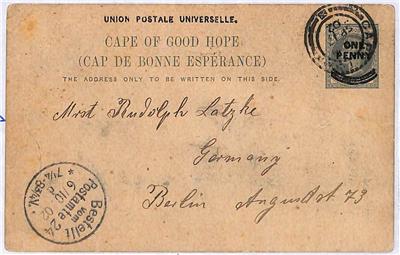 UNION POSTALE UNIVERSELLE.
CAPE OF GOOD HOPE
(CAP DE BONNE ESPÉRANCE)
THE ADDRESS ONLY TO BE WRITTEN ON THIS SIDE.
ONE
PENNY
Mrst Rudolph Latzke
Germany
Berlin Angust 73
Bestellt
vom
Postamte 24
6/10
02
7¼-8¾V.